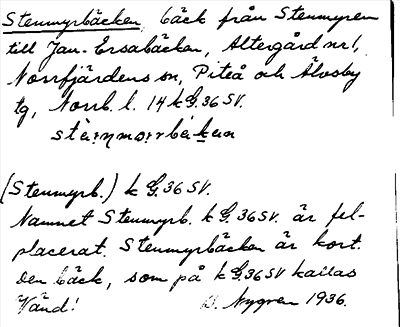 Stenmyrbäcken, bäck från Stenmyren
till Jan-Ersabäcken, Altergård nr 1,
Norrfjärdens sn, Piteå och Älvsby
tg, Norrb. l. 14 k G. 36 SV.
(Stenmyrb.) k G. 36 SV.
Namnet Stenmyrb. k G. 36 SV. är fel-
placerat. Stenmyrbäcken är kort.
Den bäck, som på k G. 36 SV kallas
Vänd! Nygren 1936.